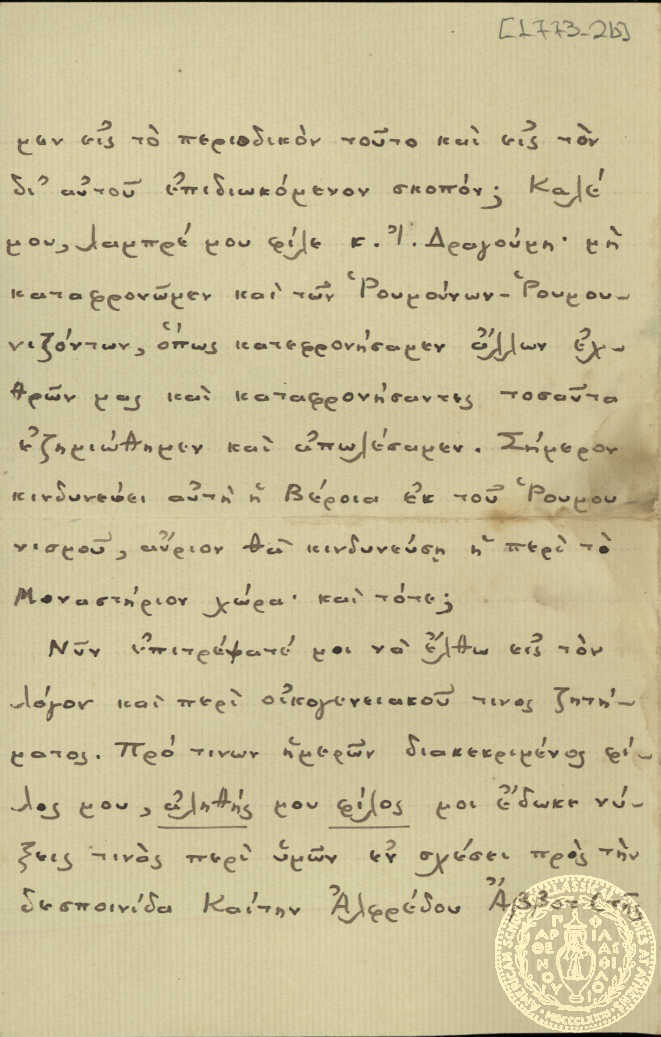 [1773-2b]
μεν εἰς τὸ περιοδικὸν τοῦτο καὶ εἰς τὸν
δι' αὐτοῦ ἐπιδιωκόμενον σκοπόν; Καλέ
μου, λαμπρέ μου φίλε κ. Ἰ. Δραγούμη· μὴ
καταφρονῶμεν καὶ τῶν Ῥουμούνων-Ῥουμου-
νιζόντων, ὅπως κατεφρονήσαμεν ἄλλων ἐχ-
θρῶν μας καὶ καταφρονήσαντες τοσαῦτα
ἐζημιώθημεν καὶ ἀπωλέσαμεν. Σήμερον
κινδυνεύει αὐτὴ ἡ Βέροια ἐκ τοῦ Ῥουμου-
νισμοῦ, αὔριον θὰ κινδυνεύσῃ ἡ περὶ τὸ
Μοναστήριον χώρα· καὶ τότε;
Νῦν ἐπιτρέψατέ μοι νὰ ἔλθω εἰς τὸν
λόγον καὶ περὶ οἰκογενειακοῦ τινος ζητή-
ματος. Πρό τινων ἡμερῶν διακεκριμένος φί-
λος μου, ἀληθής μου φίλος μοι ἔδωκε νύ-
ξεις τινὰς περὶ ὑμῶν ἐν σχέσει πρὸς τὴν
δεσποινίδα Καίτην Ἀλφρέδου Ἄββοτ (τῆς
AMERICAN SCHOOL OF CLASSICAL STUDIES AT ATHENS
ΠΑΡΘΕΝΟΥ ΦΙΛΑΣ ΦΙΛΟΥ
MDCCCLXXXI